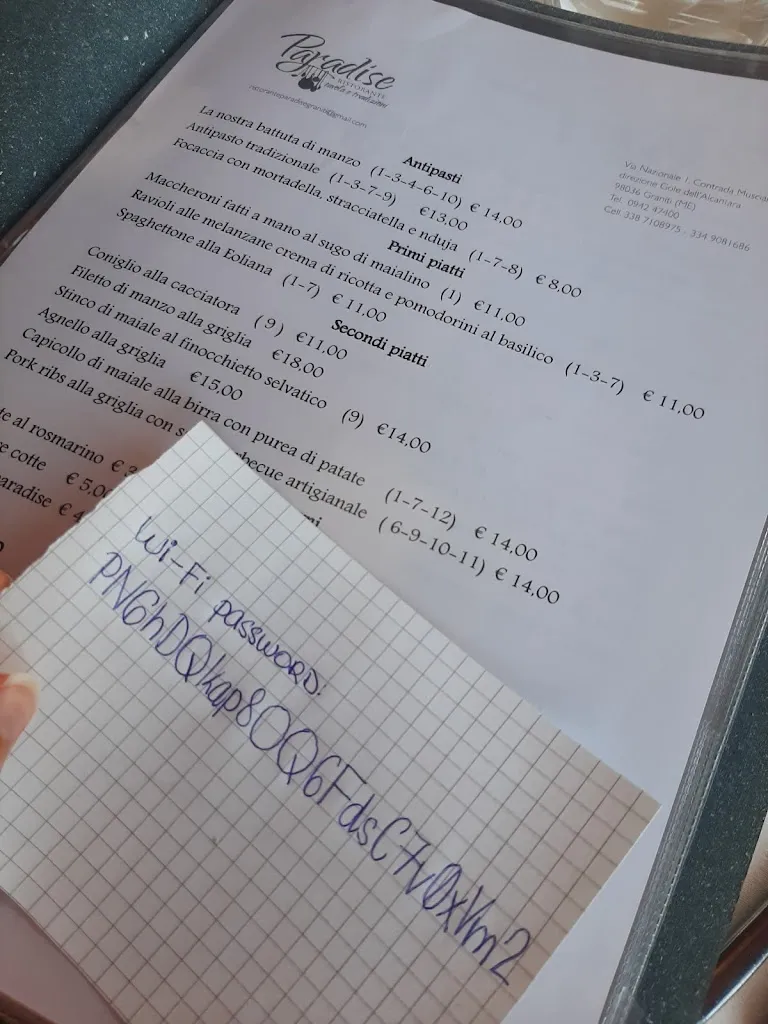 Paradise
RISTORANTE
ristoranteparadisegraniti@gmail.com
Via Nazionale 1, Contrada Muscia
direzione Gole dell'Alcantara
98036 Graniti (ME)
Tel. 0942 47400
Cell. 338 7108975 - 334 9081686
Antipasti
La nostra battuta di manzo (1-3-4-6-10) € 14,00
Antipasto tradizionale (1-3-7-9) €13,00
Focaccia con mortadella, stracciatella e nduja (1-7-8) € 8,00
Primi piatti
Maccheroni fatti a mano al sugo di maialino (1) €11,00
Ravioli alle melanzane crema di ricotta e pomodorini al basilico (1-3-7) € 11,00
Spaghettone alla Eoliana (1-7) € 11,00
Secondi piatti
Coniglio alla cacciatora (9) €11,00
Filetto di manzo alla griglia €18,00
Stinco di maiale al finocchietto selvatico (9) €14,00
Agnello alla griglia €15,00
Capicollo di maiale alla birra con purea di patate (1-7-12) € 14,00
Pork ribs alla griglia con s becue artigianale (6-9-10-11) € 14,00
te al rosmarino €
e cotte € 5,00
aradise € 4
Wi-Fi PASSWORD:
PNGhDQkap8OQ6FdsC7v0xVm2